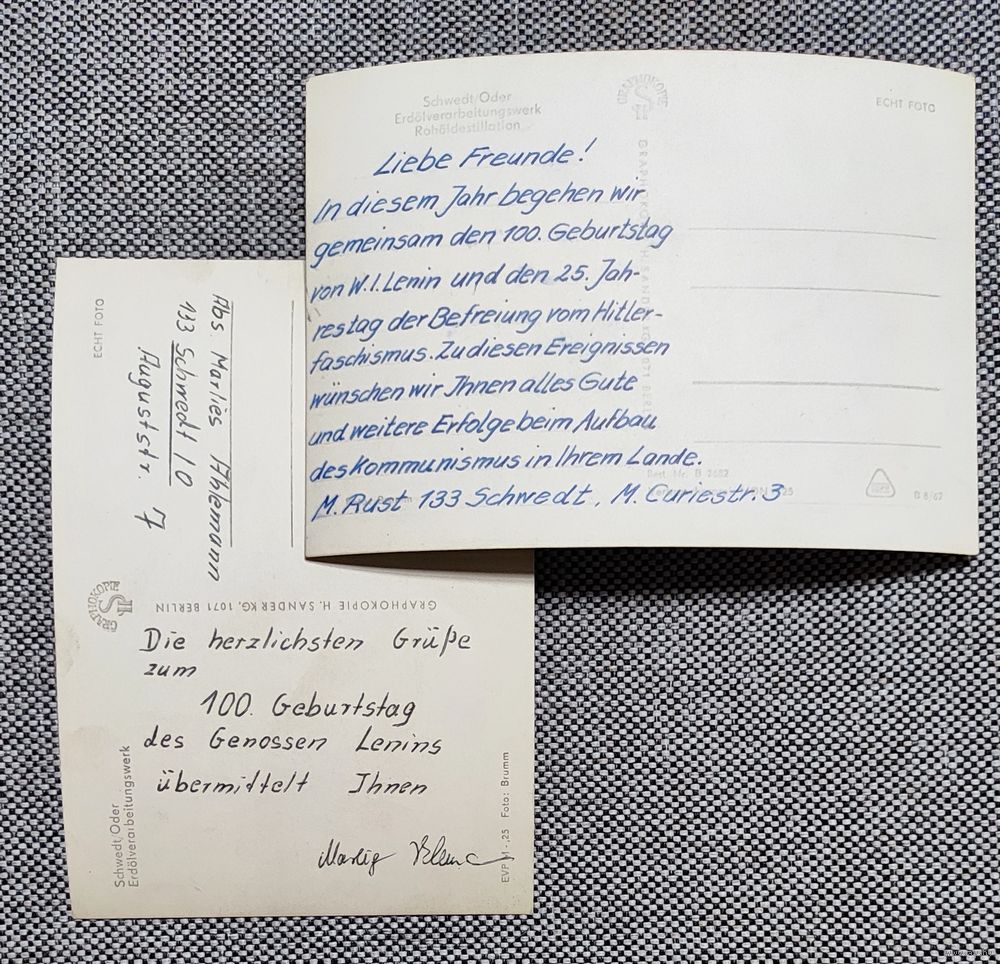 Schwedt/Oder
Erdölverarbeitungswerk
Rohöldestillation
GRAPHOKOPIE
ECHT FOTO
Liebe Freunde!
In diesem Jahr begehen wir
gemeinsam den 100. Geburtstag
von W.I. Lenin und den 25. Jah-
restag der Befreiung vom Hitler-
faschismus. Zu diesen Ereignissen
wünschen wir Ihnen alles Gute
und weitere Erfolge beim Aufbau
des Kommunismus in Ihrem Lande.
M. Rust 133 Schwedt, M. Curiestr. 3
Best. Nr. B 2682
B 8/67
ECHT FOTO
Abs. Marlies Ahlemann
113 Schwedt / O
Auguststr. 7
GRAPHOKOPIE
GRAPHOKOPIE H. SANDER KG, 1071 BERLIN
Die herzlichsten Grüße
zum
100. Geburtstag
des Genossen Lenins
übermittelt Ihnen
Schwedt/Oder
Erdölverarbeitungswerk
EVP M -,25 Foto: Brumm